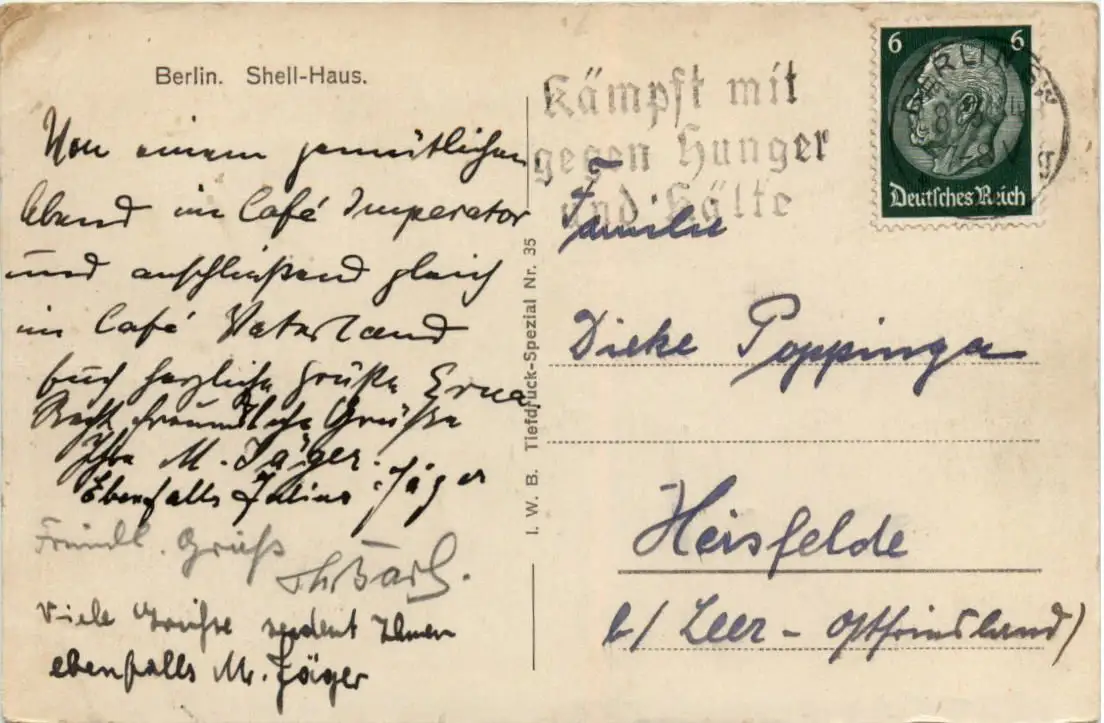 Berlin. Shell-Haus.
Von einem gemütlichen
Abend im Café Imperator
und anschließend gleich
im Café Vaterland
herzliche Grüße Erna
Recht freundliche Grüße
Ihre M. Jäger.
Ebenfalls Julius Jäger
Freundl. Gruß
Viele Grüsse sendet Ihnen
ebenfalls M. Jäger
I. W. B. Tiefdruck-Spezial Nr. 35
Kämpft mit
gegen Hunger
und Kälte
6 6
Deutsches Reich
BERLIN SW
Familie
Dieke Poppinga
Heisfelde
b/ Leer - Ostfriesland)